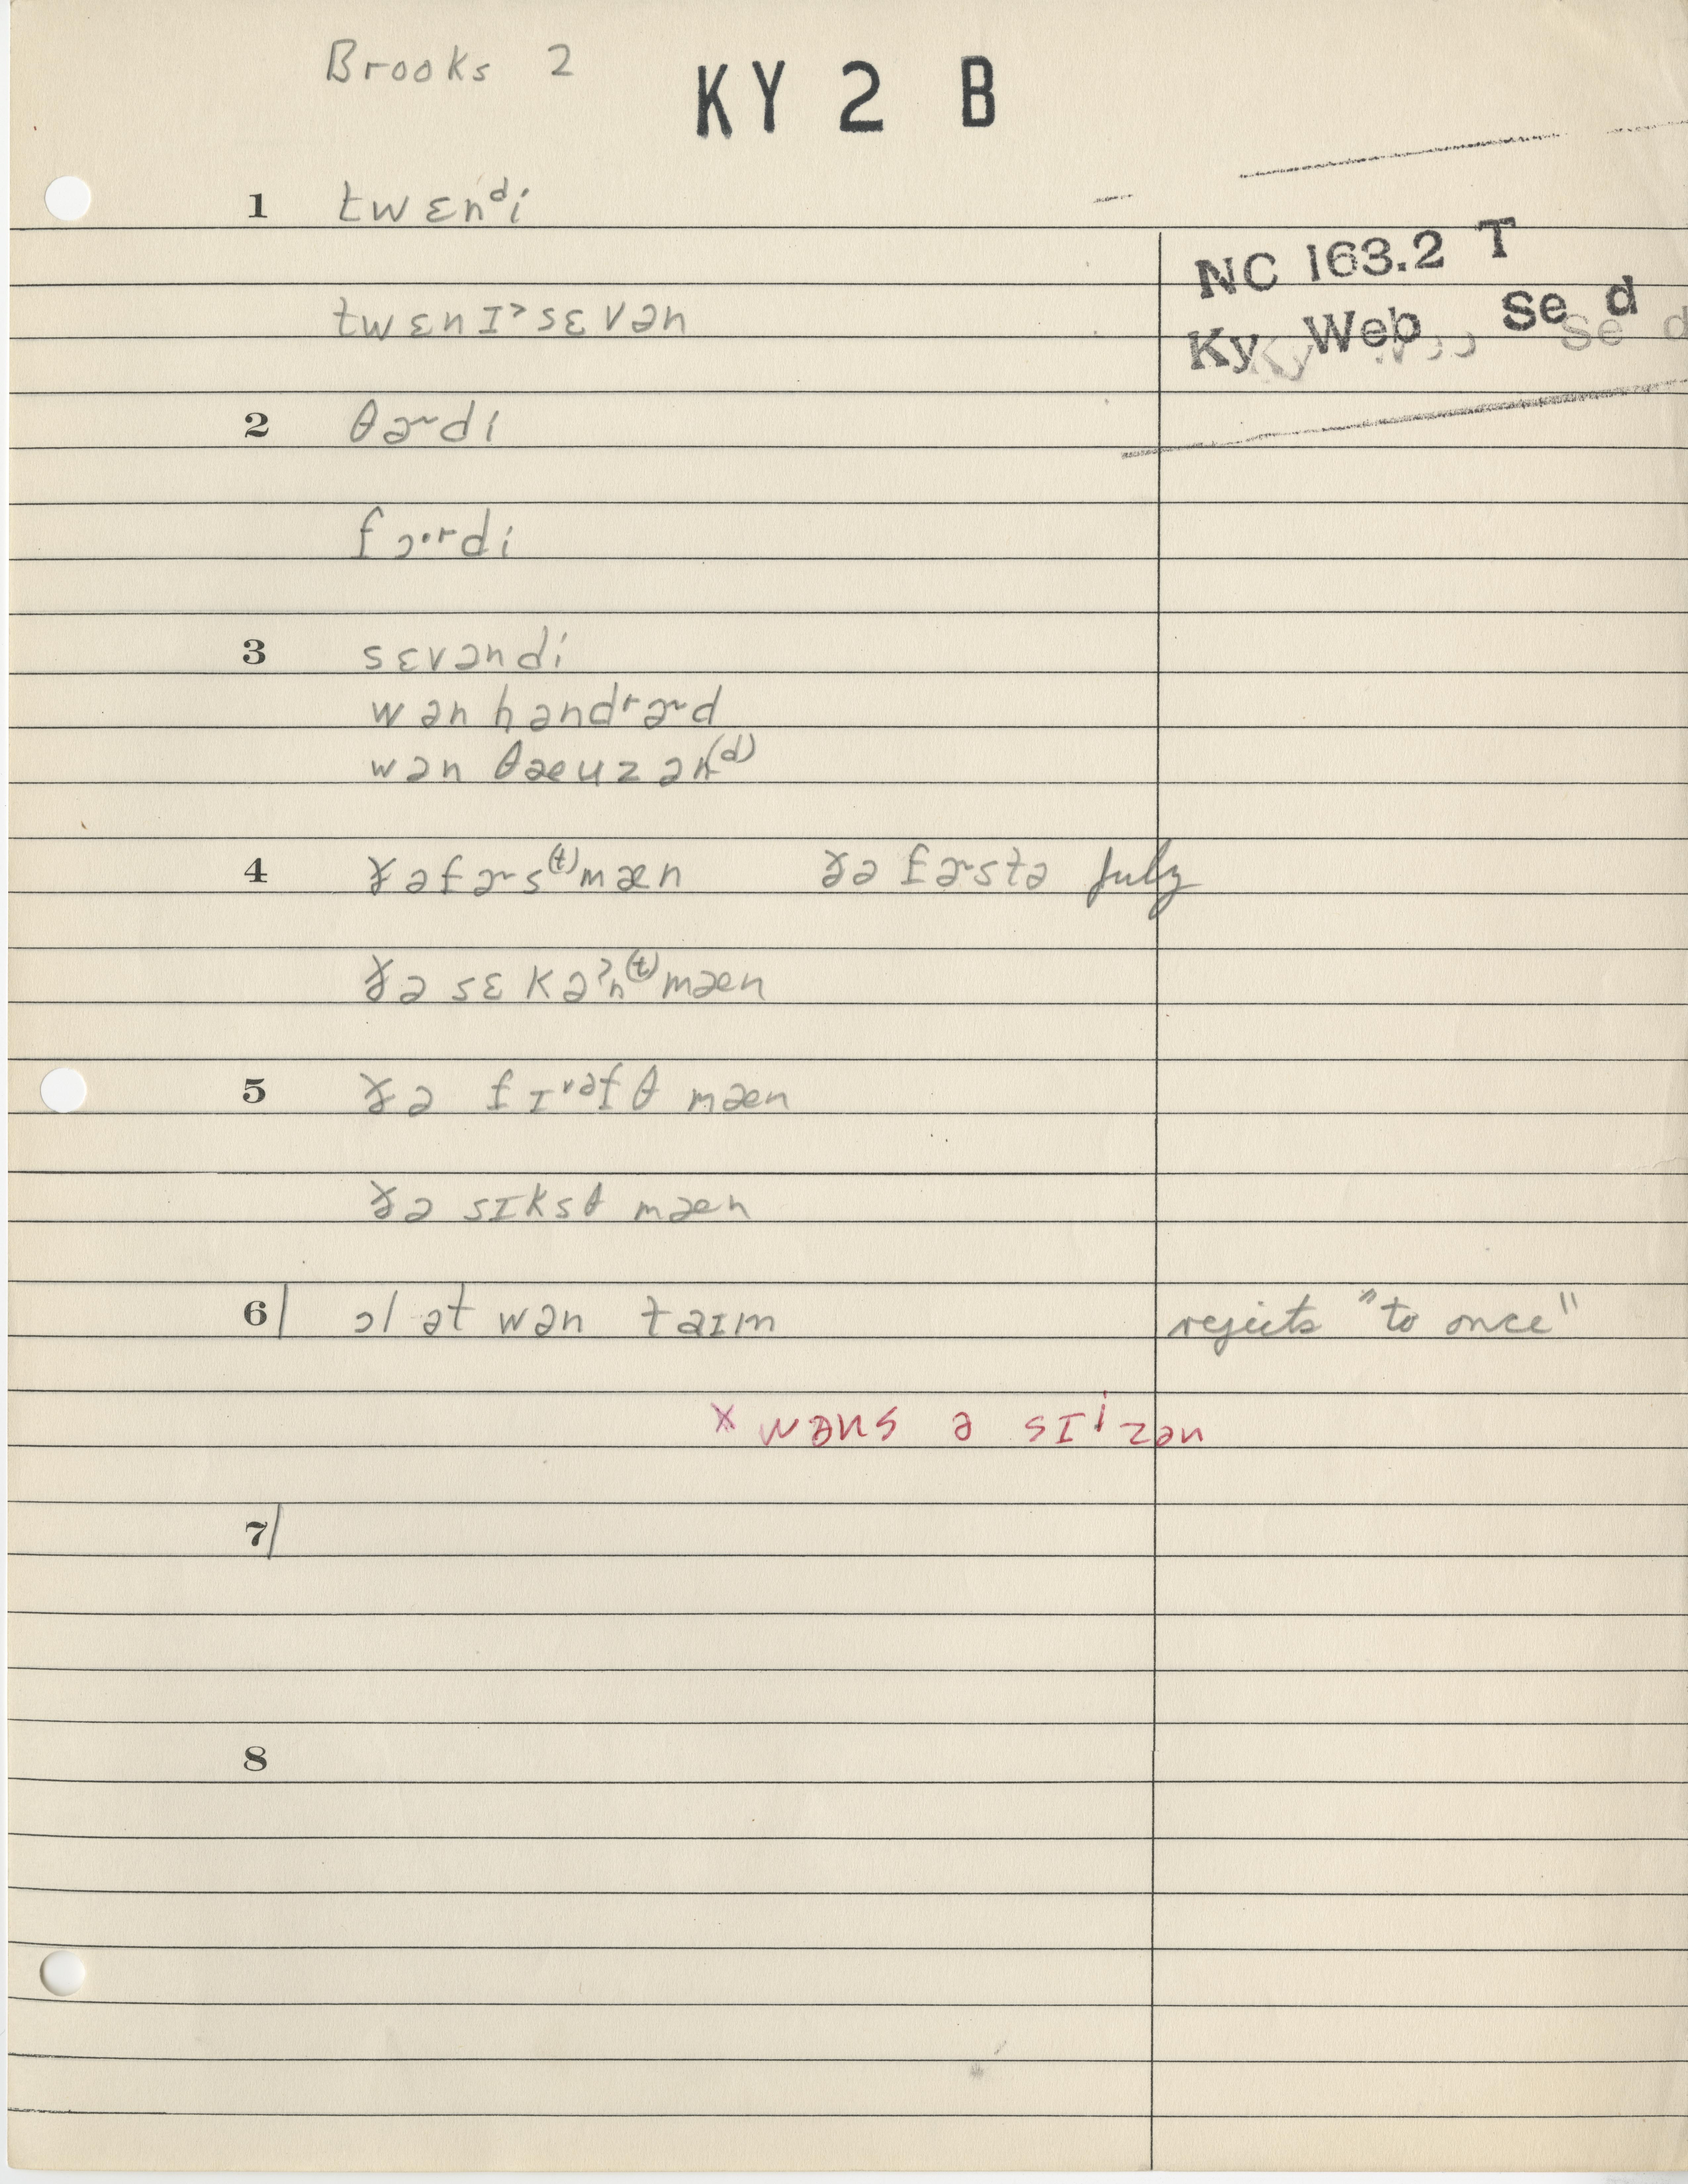 Brooks 2
KY 2 B
1 twɛnᵈi
NC 163.2 T
twɛnɪ˃sɛvən
Ky Web Se d
2 θɚdi
fɔ·rdi
3 sɛvəndi
wən həndrɚd
wən θæuzən(d)
4 ðəfɚs(t)mæn ðə fɚstə July
ðə sɛkəˀn(t)mæn
5 ðə fɪᵛəfθ mæn
ðə sɪksθ mæn
6/ ɔl ət wən taɪm rejects "to once"
x wəns ə sɪizən
7/
8